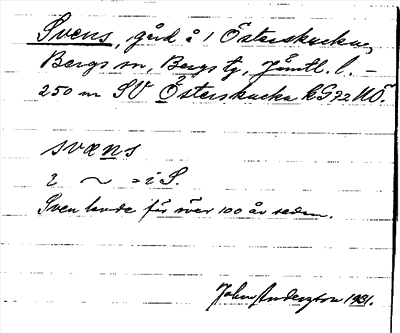 Svens, gård å 1 Österskucku,
Bergs sn, Bergs tg, Jämtl. l. –
250 m SV Österskucku kG72NÖ.
svæns
i ~ = i S.
Sven levde för över 100 år sedan.
John Anderzson 1931.